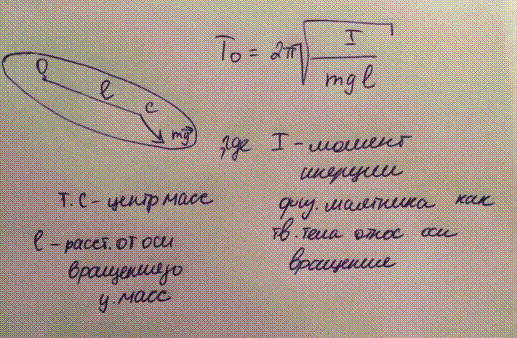 T₀ = 2π√(I/mgl)
O
l
C
mg⃗
, где I – момент
инерции
физ. маятника как
тв. тела относ оси
вращение
т. C – центр масс
l – расст. от оси
вращения до
ц. масс